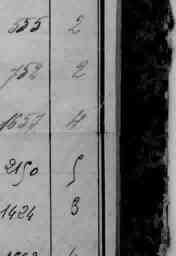 555 2
752 2
1657 4
2150 5
1424 3